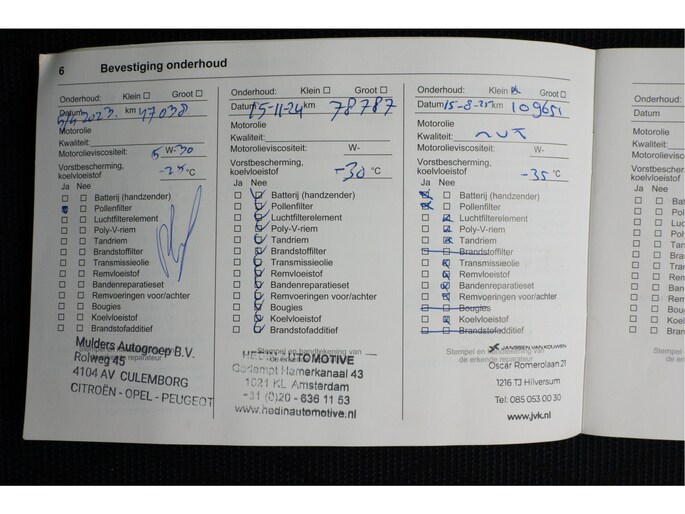 6 Bevestiging onderhoud
Onderhoud: Klein Groot
Datum 5/5 2023. km 47038
Motorolie
Kwaliteit:
Motorolieviscositeit: 5 W-30
Vorstbescherming,
koelvloeistof -25 °C
Ja Nee
Batterij (handzender)
Pollenfilter
Luchtfilterelement
Poly-V-riem
Tandriem
Brandstoffilter
Transmissieolie
Remvloeistof
Bandenreparatieset
Remvoeringen voor/achter
Bougies
Koelvloeistof
Brandstofadditief
Stempel en handtekening van
de erkende reparateur
Mulders Autogroep B.V.
Rolweg 45
4104 AV CULEMBORG
CITROËN - OPEL - PEUGEOT
Onderhoud: Klein Groot
Datum 15-11-24 km 78787
Motorolie
Kwaliteit:
Motorolieviscositeit: W-
Vorstbescherming,
koelvloeistof -30 °C
Ja Nee
Batterij (handzender)
Pollenfilter
Luchtfilterelement
Poly-V-riem
Tandriem
Brandstoffilter
Transmissieolie
Remvloeistof
Bandenreparatieset
Remvoeringen voor/achter
Bougies
Koelvloeistof
Brandstofadditief
Stempel en handtekening van
de erkende reparateur
HEDIN AUTOMOTIVE
Gerlempt Hamerkanaal 43
1021 KL Amsterdam
+31 (0)20 - 636 11 53
www.hedinautomotive.nl
Onderhoud: Klein Groot
Datum 15-8-25 km 109651
Motorolie
Kwaliteit:
Motorolieviscositeit: W-
Vorstbescherming,
koelvloeistof -35 °C
Ja Nee
Batterij (handzender)
Pollenfilter
Luchtfilterelement
Poly-V-riem
Tandriem
Brandstoffilter
Transmissieolie
Remvloeistof
Bandenreparatieset
Remvoeringen voor/achter
Bougies
Koelvloeistof
Brandstofadditief
Stempel en handtekening van
de erkende reparateur
JANSSEN VAN KOUWEN
Oscar Romerolaan 21
1216 TJ Hilversum
Tel: 085 053 00 30
www.jvk.nl
Onderhoud:
Datum
Motorolie
Kwaliteit:
Motorolie
Vorstbesc
koelvloeist
Ja Nee
Bat
Poll
Luc
Poly
Tan
Bra
Tra
Rer
Bar
Re
Bo
Ko
Br